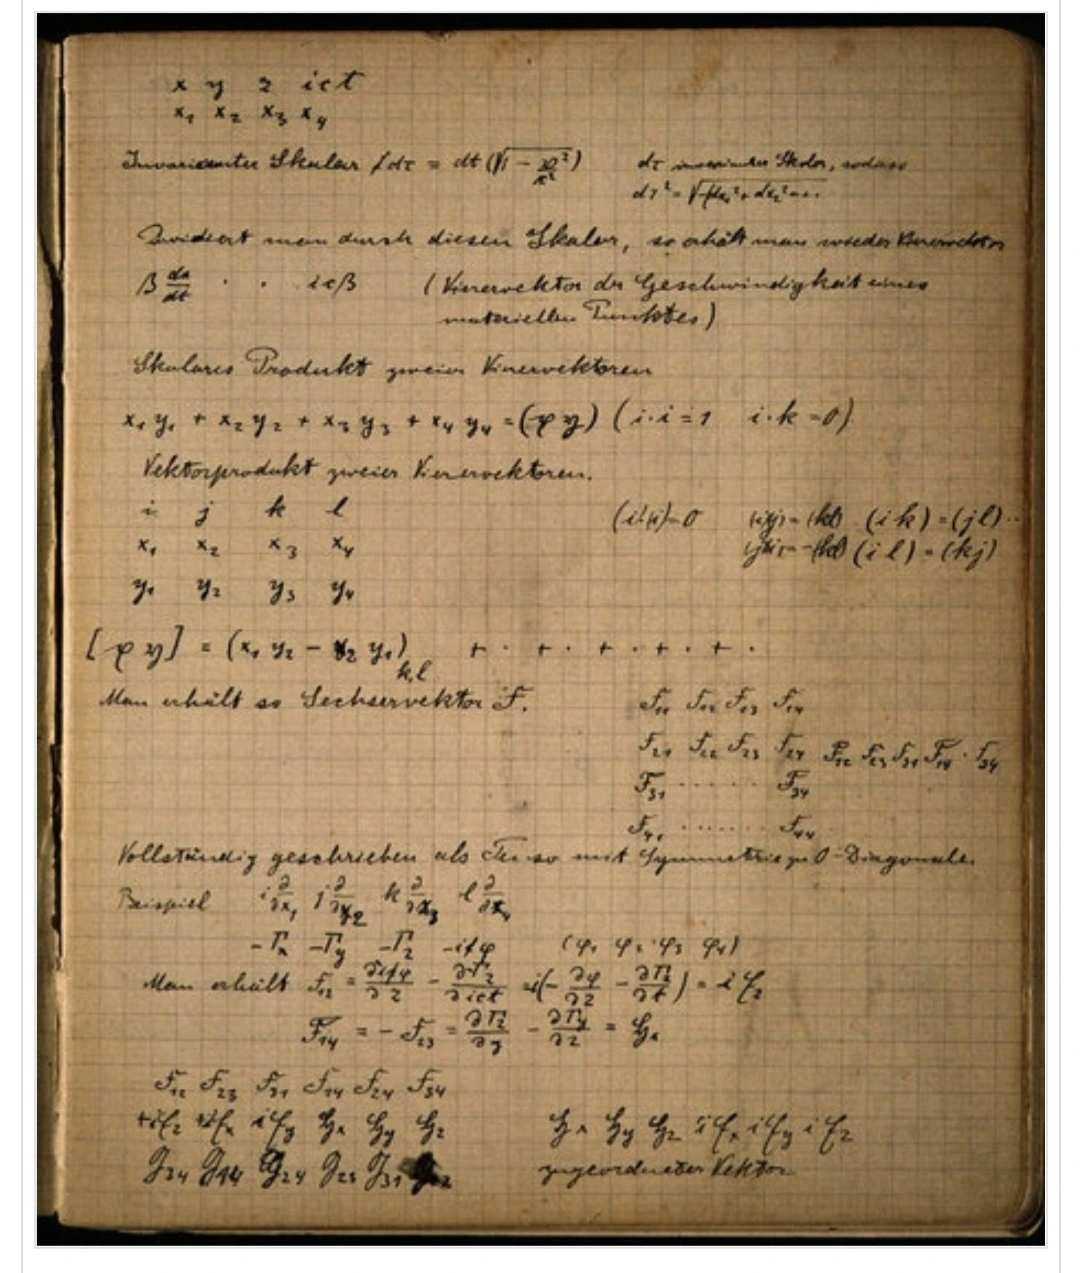 x y z ict
x₁ x₂ x₃ x₄
Invarianter Skalar dτ = dt (√1 − 𝔴²/c²) dτ invarianter Skalar, sodass
dτ² = √−(dx₁² + dx₂² − ..
Dividiert man durch diesen Skalar, so erhält man wieder Vierervektor
β dx/dt · · icβ (Vierervektor der Geschwindigkeit eines
materiellen Punktes)
Skalares Produkt zweier Vierervektoren
x₁y₁ + x₂y₂ + x₃y₃ + x₄y₄ = (𝔵 𝔶) (i·i = 1 i·k = 0)
Vektorprodukt zweier Vierervektoren.
i j k l (i i) = 0 (ij) = (kl) (ik) = (jl) ..
x₁ x₂ x₃ x₄ (ji) = −(kl) (il) = (kj)
y₁ y₂ y₃ y₄
[𝔵 𝔶] = (x₁y₂ − x₂y₁)k,l + · + · + · + · + ·
Man erhält so Sechservektor F. F₁₁ F₁₂ F₁₃ F₁₄
F₂₁ F₂₂ F₂₃ F₂₄ F₁₂ F₂₃ F₃₁ F₁₄ · F₃₄
F₃₁ ...... F₃₄
F₄₁ ...... F₄₄
Vollständig geschrieben als Tensor mit Symmetrie zu 0-Diagonale.
Beispiel i ∂/∂x₁ j ∂/∂x₂ k ∂/∂x₃ l ∂/∂x₄
−Γx −Γy −Γz −iφ (φ₁ φ₂ φ₃ φ₄)
Man erhält F₁₂ = ∂iφ/∂z − ∂Γz/∂ict = i(− ∂φ/∂z − ∂Γz/∂t) = i𝔈z
F₁₄ = − F₂₃ = ∂Γz/∂y − ∂Γy/∂z = ℌx
F₁₂ F₂₃ F₃₁ F₁₄ F₂₄ F₃₄
+i𝔈z i𝔈x i𝔈y ℌx ℌy ℌz ℌx ℌy ℌz i𝔈x i𝔈y i𝔈z
J₃₄ J₁₄ J₂₄ J₂₃ J₃₁ zugeordneter Vektor